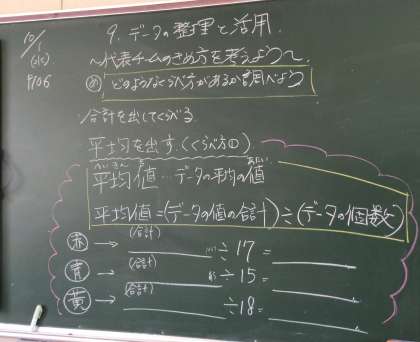 10/1
P106
9. データの整理と活用
〜代表チームのきめ方を考えよう〜
め どのようなくらべ方があるか調べよう
合計を出してくらべる
平均を出す (くらべ方①)
へいきん ち あたい
平均値…データの平均の値
平均値=(データの値の合計)÷(データの個数)
赤 → (合計) ÷17=
青 → (合計) ÷15=
黄 → (合計) ÷18=